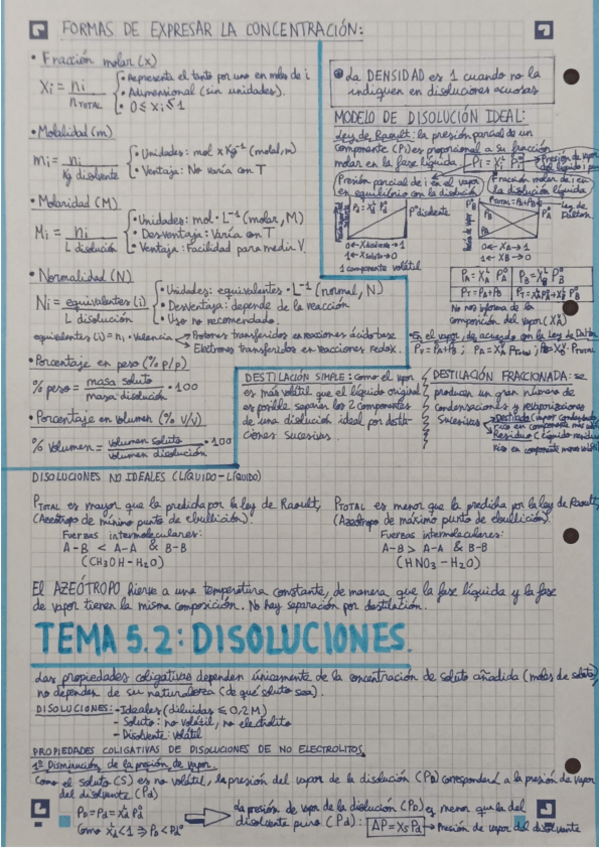 FORMAS DE EXPRESAR LA CONCENTRACIÓN:
• Fracción molar (x)
Xi = ni / nTOTAL
• Representa el tanto por uno en moles de i
• Adimensional (sin unidades).
• 0 ≤ Xi ≤ 1
• Molalidad (m)
mi = ni / Kg disolvente
• Unidades: mol x Kg⁻¹ (molal, m)
• Ventaja: No varía con T
• Molaridad (M)
Mi = ni / L disolución
• Unidades: mol · L⁻¹ (molar, M)
• Desventaja: Varía con T
• Ventaja: Facilidad para medir V.
• Normalidad (N)
Ni = equivalentes (i) / L disolución
• Unidades: equivalentes · L⁻¹ (normal, N)
• Desventaja: depende de la reacción
• Uso no recomendado.
equivalentes (i) = ni · Valencia
Protones transferidos en reacciones ácido base
Electrones transferidos en reacciones redox.
• Porcentaje en peso (% p/p)
% peso = masa soluto / masa disolución · 100
• Porcentaje en Volumen (% V/V)
% Volumen = volumen soluto / volumen disolución · 100
• La DENSIDAD es 1 cuando no la
indiquen en disoluciones acuosas
MODELO DE DISOLUCIÓN IDEAL:
Ley de Raoult: la presión parcial de un
componente (Pi) es proporcional a su fracción
molar en la fase líquida.
Presión parcial de i en el vapor
en equilibrio con la disolución
Fracción molar de i en
la disolución líquida
PTOTAL = PA + PB
Ley de
Dalton.
P° disolvente
0 ← X soluto → 1
1 ← X soluto → 0
1 componente volátil
0 ← XA → 1
1 ← XB → 0
PA = XA PA°
PB = XB PB°
PT = PA + PB
No nos informa de la
composición del vapor (XA)
• En el vapor de acuerdo con la Ley de Dalton
PV = PA + PB ; PA = XA PTOTAL ; PB = XB · PTOTAL
DESTILACIÓN SIMPLE: como el vapor
es más volátil que el líquido original
es posible separar los 2 componentes
de una disolución ideal por destila-
ciones sucesivas.
DESTILACIÓN FRACCIONADA: se
producen un gran número de
Condensaciones y revaporizaciones
Sucesivas
Destilado (vapor condensado
rico en componente más volátil)
Residuo (líquido residual
rico en componente menos volátil)
DISOLUCIONES NO IDEALES (LÍQUIDO-LÍQUIDO)
PTOTAL es mayor que la predicha por la ley de Raoult,
(Azeótropo de mínimo punto de ebullición).
Fuerzas intermoleculares:
A-B < A-A & B-B
(CH3OH-H2O)
PTOTAL es menor que la predicha por la ley de Raoult,
(Azeótropo de máximo punto de ebullición).
Fuerzas intermoleculares:
A-B > A-A & B-B
(HNO3-H2O)
El AZEÓTROPO hierve a una temperatura constante, de manera que la fase líquida y la fase
de vapor tienen la misma composición. No hay separación por destilación.
TEMA 5.2: DISOLUCIONES.
Las propiedades coligativas dependen únicamente de la concentración de soluto añadida (moles de soluto)
no depende de su naturaleza (de qué soluto sea).
DISOLUCIONES: - Ideales (diluidas ≤ 0,2 M)
- Soluto: no volátil, no electrolito
- Disolvente: Volátil
PROPIEDADES COLIGATIVAS DE DISOLUCIONES DE NO ELECTROLITOS
1º Disminución de la presión de vapor.
Como el soluto (S) es no volátil, la presión del vapor de la disolución (PD) corresponderá a la presión de vapor
del disolvente (Pd)
PD = Pd = Xd Pd°
Como Xd < 1 ⇒ PD < Pd°
La presión de vapor de la disolución (PD) es menor que la del
disolvente puro (Pd): ΔP = Xs Pd → Presión de vapor del disolvente